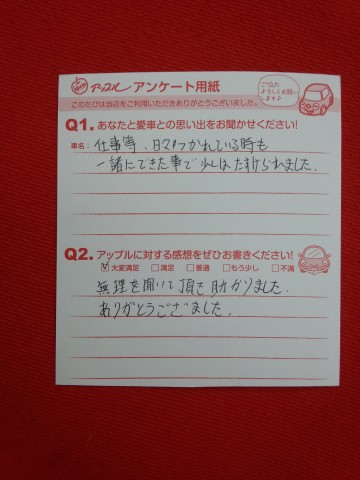 アップル アンケート用紙
ご協力
よろしくお願い
します♪
このたびは当店をご利用いただきありがとうございました。
Q1. あなたと愛車との思い出をお聞かせください!
車名: 仕事等、日々つかれている時も
一緒にできた事で少しはたすけられました。
Q2. アップルに対する感想をぜひお書きください!
☑大変満足 □満足 □普通 □もう少し □不満
無理を聞いて頂き助かりました。
ありがとうございました。